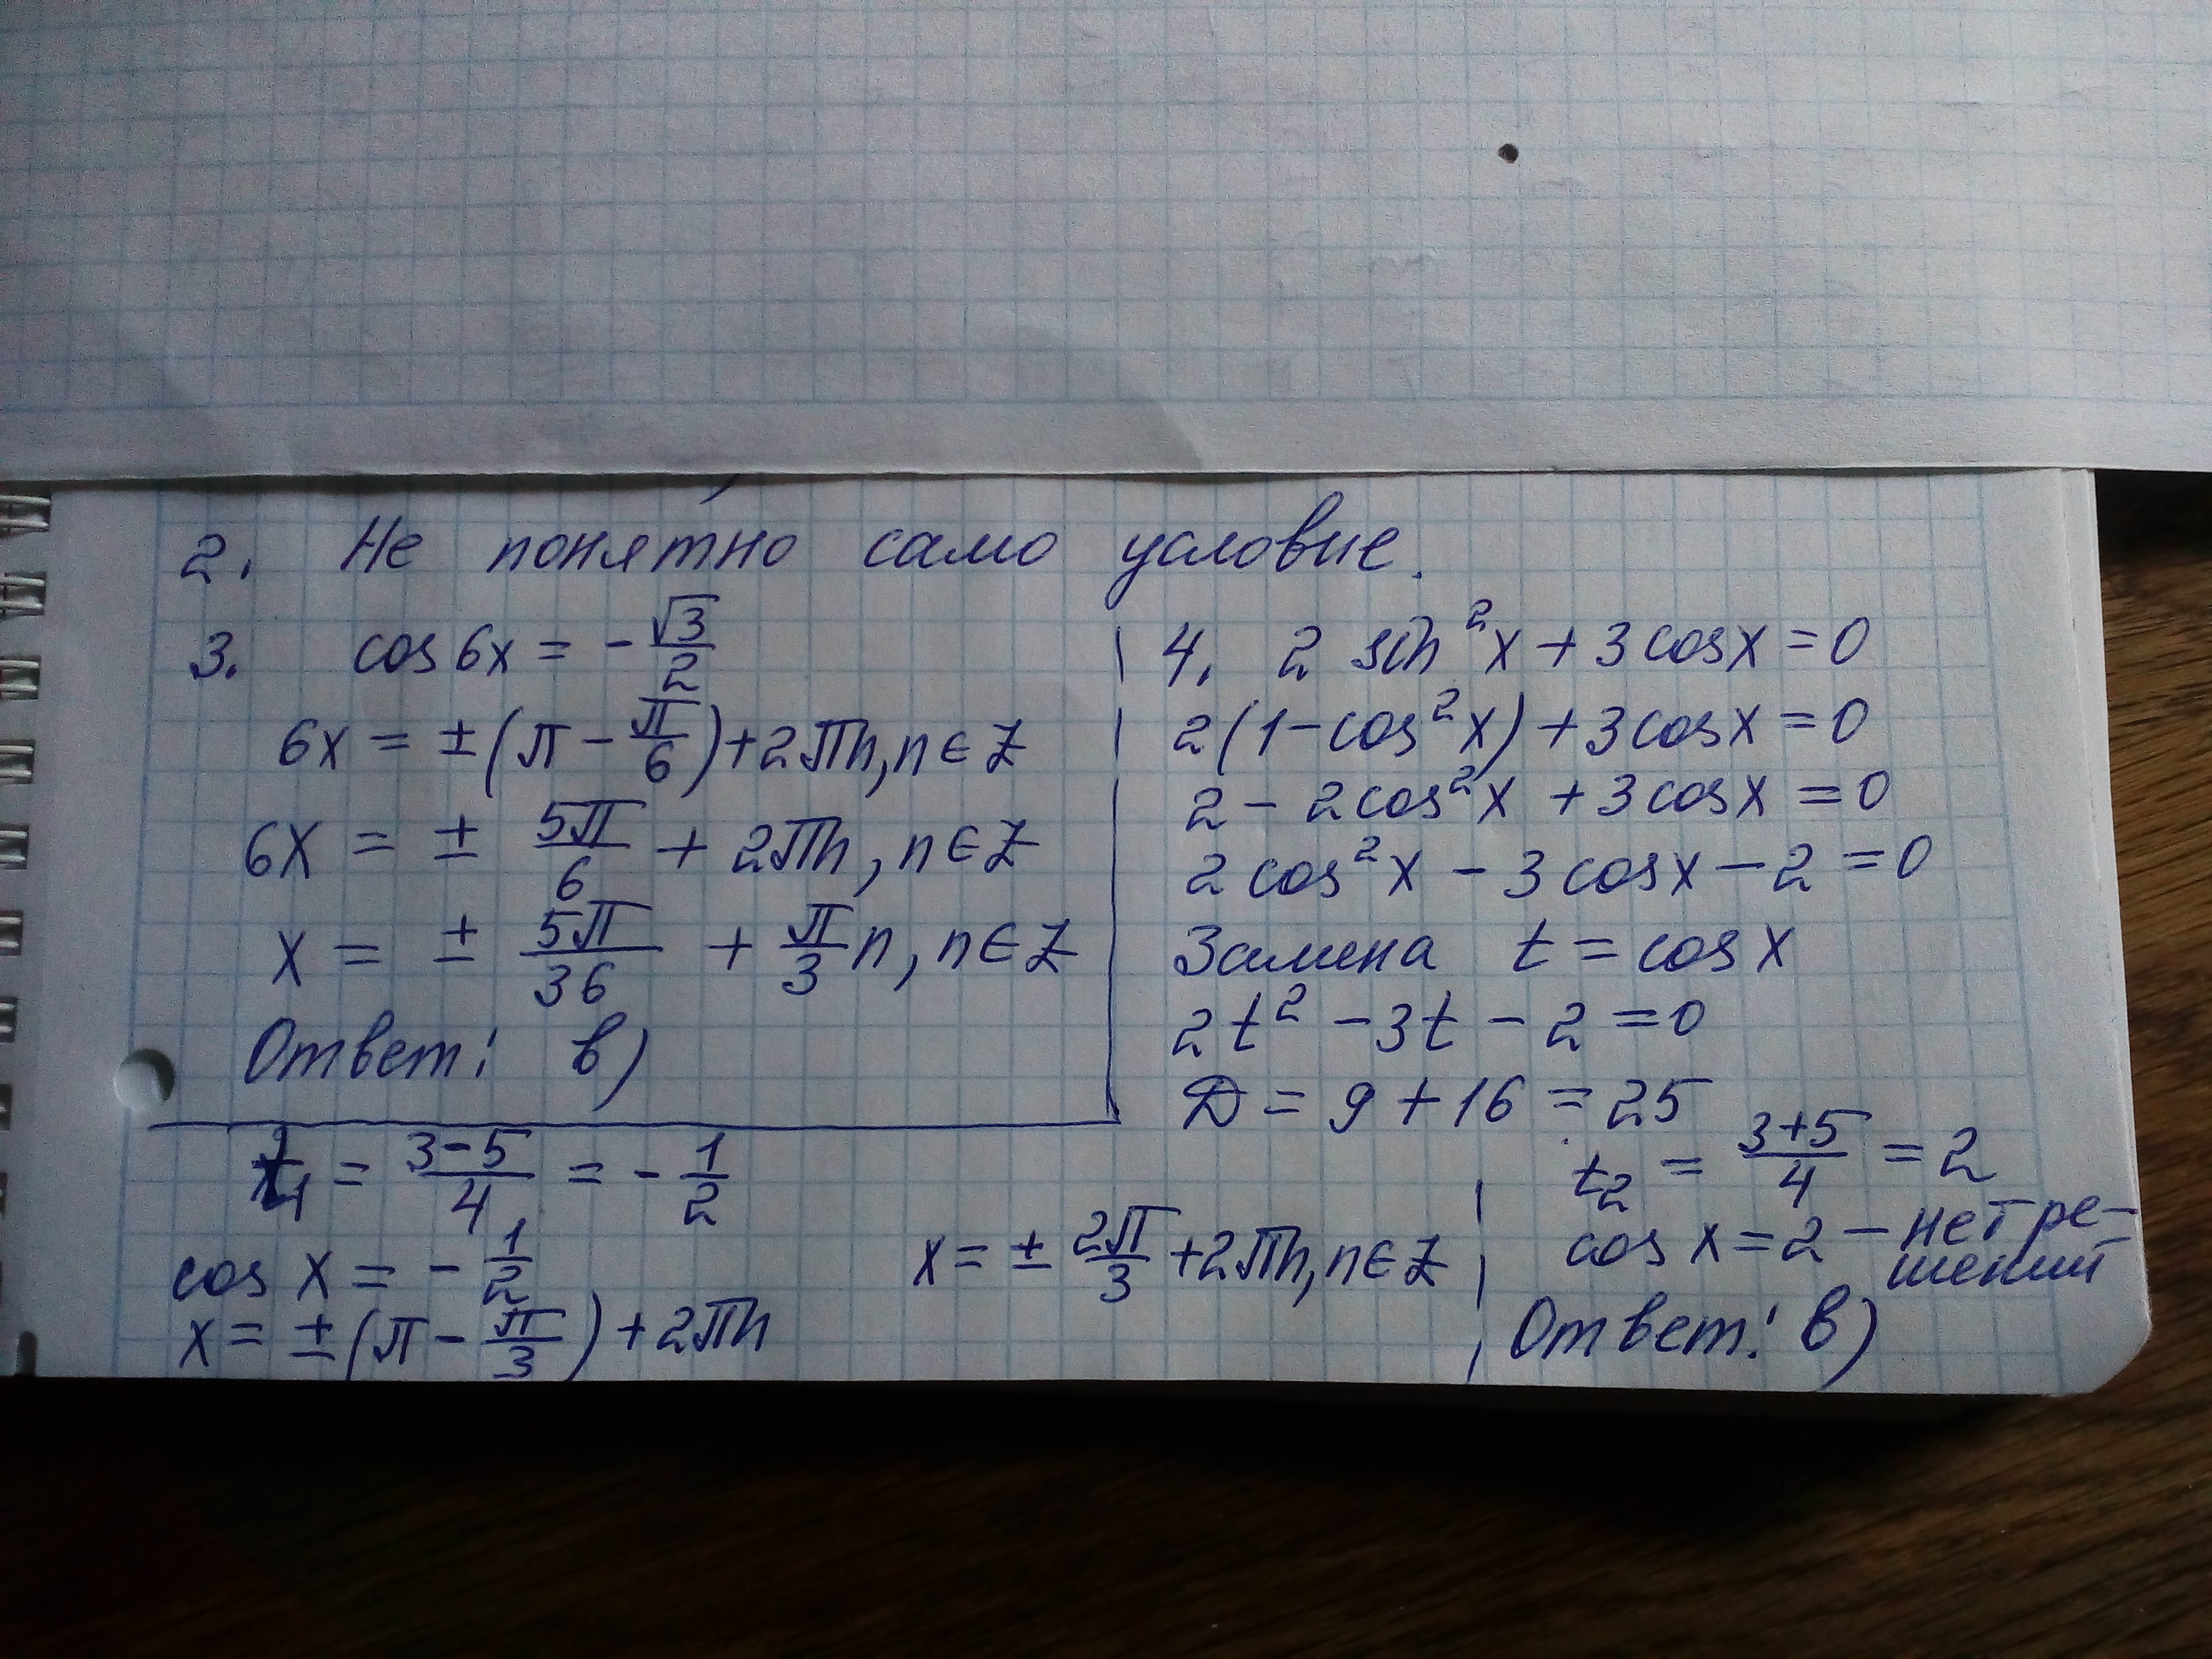 2. Не понятно само условие.
3. cos 6x = -√3/2
6x = ±(π - π/6) + 2πn, n ∈ Z
6x = ± 5π/6 + 2πn, n ∈ Z
x = ± 5π/36 + π/3 n, n ∈ Z
Ответ: в)
4. 2 sin²x + 3 cosx = 0
2(1 - cos²x) + 3 cosx = 0
2 - 2cos²x + 3 cosx = 0
2 cos²x - 3 cosx - 2 = 0
Замена t = cos x
2t² - 3t - 2 = 0
D = 9 + 16 = 25
t₁ = (3-5)/4 = -1/2
cos x = -1/2
x = ±(π - π/3) + 2πn
x = ± 2π/3 + 2πn, n ∈ Z
t₂ = (3+5)/4 = 2
cos x = 2 - нет ре-
шений
Ответ: в)